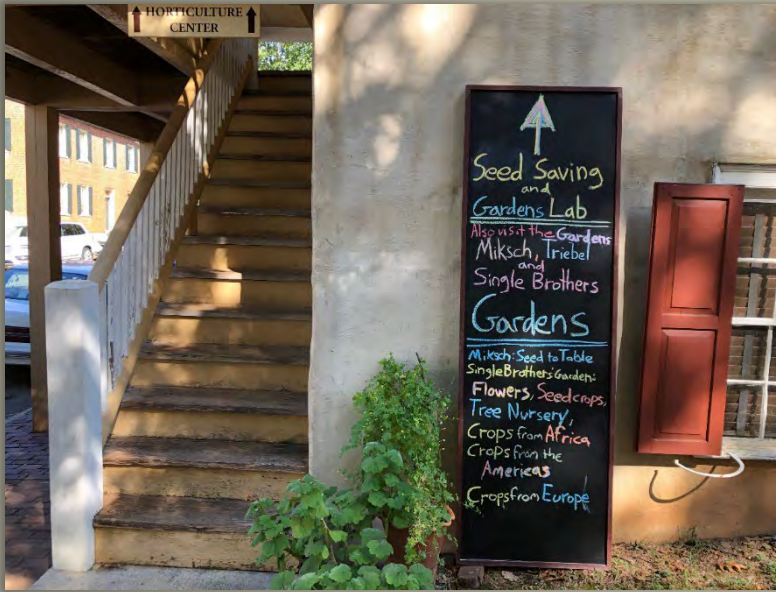 HORTICULTURE
CENTER
Seed Saving
and
Gardens Lab
Also visit the Gardens
Miksch, Triebel
and
Single Brothers
Gardens
Miksch: Seed to Table
Single Brothers' Garden:
Flowers, Seed crops,
Tree Nursery,
Crops from Africa
Crops from the
Americas
Crops from Europe